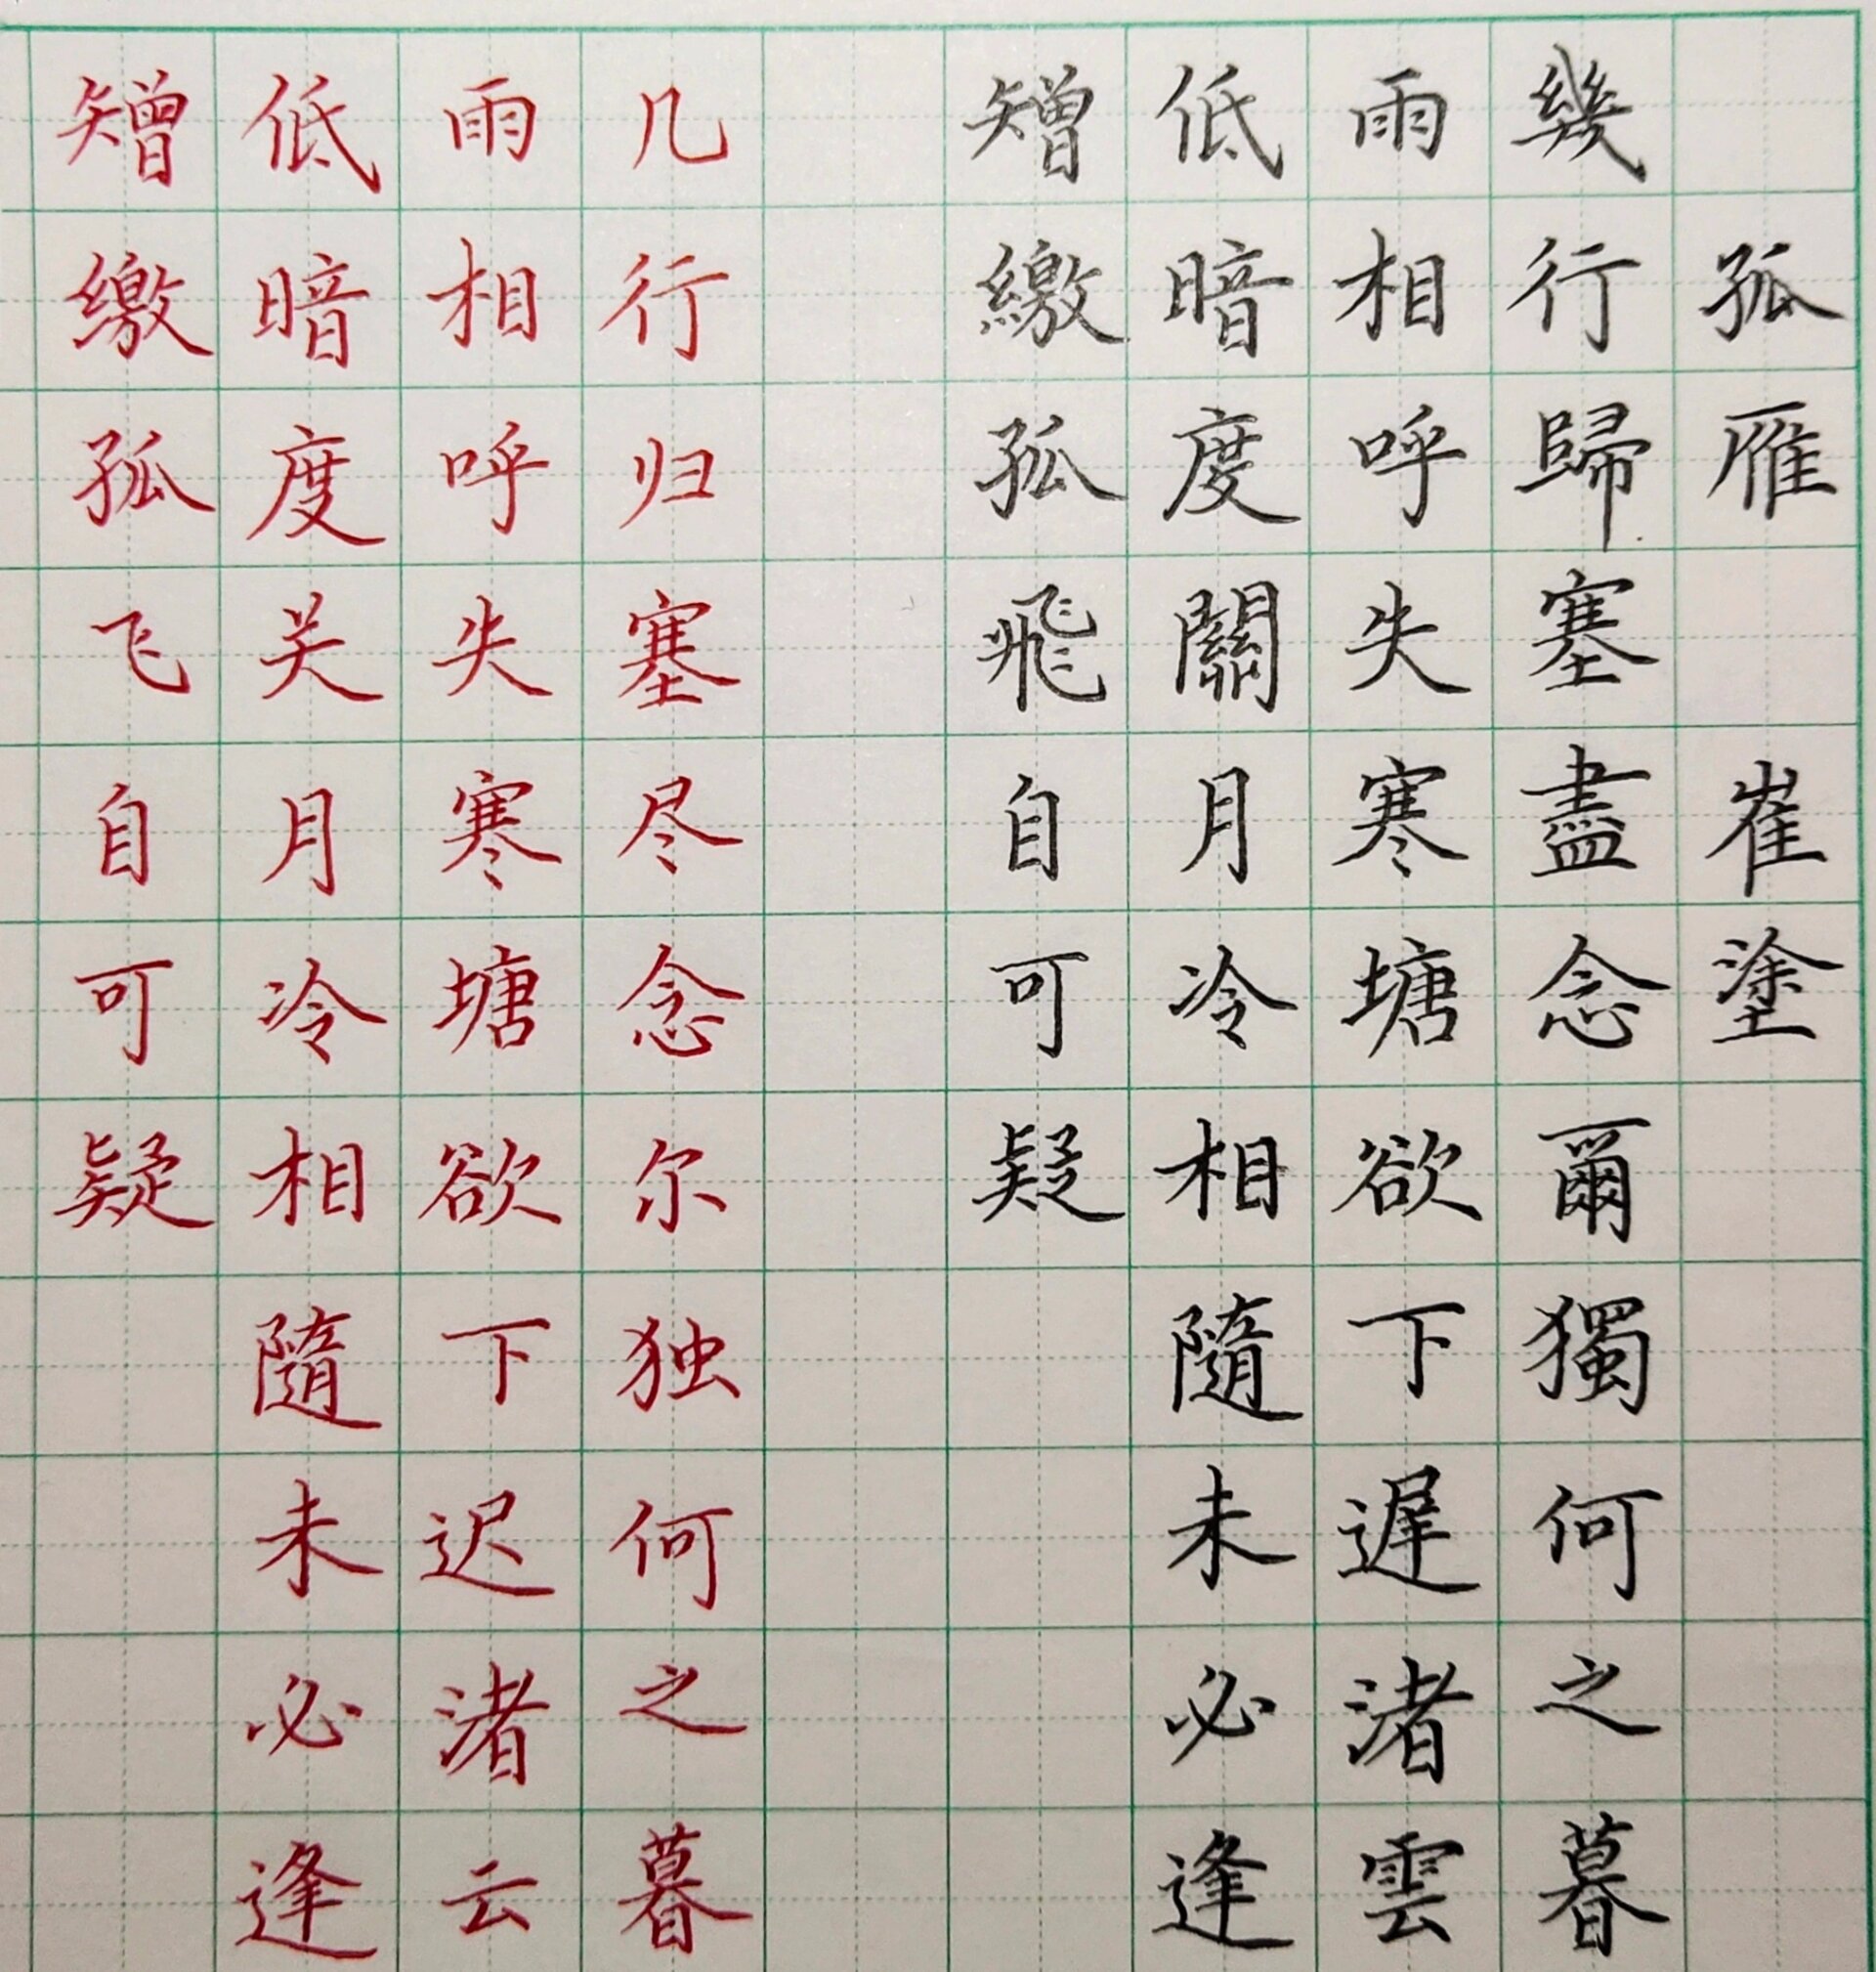 孤雁 崔塗
幾行歸塞盡念爾獨何之暮
雨相呼失寒塘欲下遲渚雲
低暗度關月冷相隨未必逢
矰繳孤飛自可疑
几行归塞尽念尔独何之暮
雨相呼失寒塘欲下迟渚云
低暗度关月冷相隨未必逢
矰缴孤飞自可疑